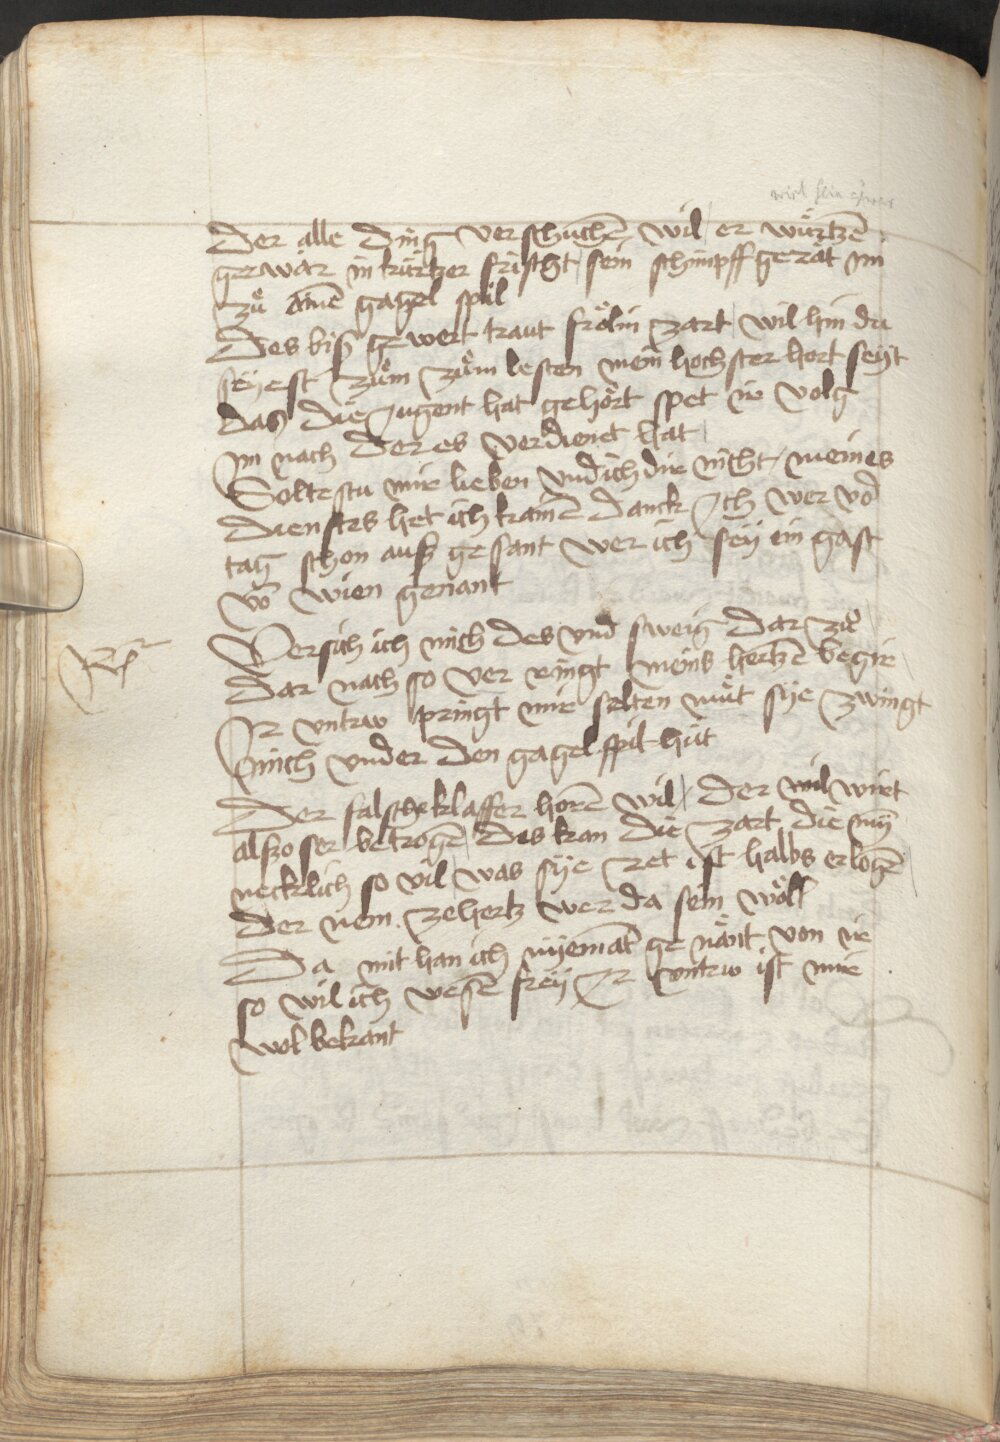 Der alle ding verschuchē wil / er wúrtzē
gewár in kúrtzer fristht / sein schimpff gerát im
zů ainē gagel spil
Des biß gewert traut frölin zart / wil hin du
seyest zům zům lesten mein hochster hort seyt
das die Jugent hat gehört spet ir volg
im nach der es verdienet hat /
Soltestu mir lieben vnd ich dir nitht / meines
dienstes het ich kainē danck Ich wer vor
tag schon auß gesant wer ich sey ein gast
vō wien genant
Versich ich mich des vnd sweig dar zů
dar nach so ver ringt meins hertzē begir
Ir vntrw pringt mir selten můt sye zwingt
mich vnder den gagel spil hůt
Rf
Der falsche klaffer horē wil / der wil wirt
alßo ser betrogē / des kan die zart die mȳ
necklich so vil / was sye ret ist halbs erlogē
der nem zehertz wer da sein wöll
Da mit han ich nyemāt genänt von ir
so wil ich wesē frey Ir vntrw ist mir
wol bekant